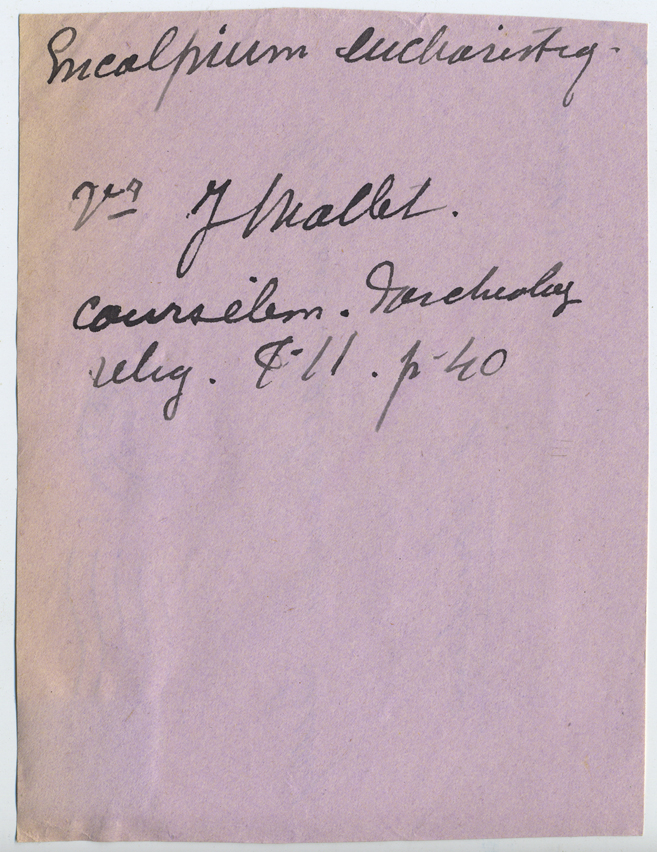 Encolpium eucharistiq.
J Mallet.
cours élem. d'archeolog
relig. T-11. p-40